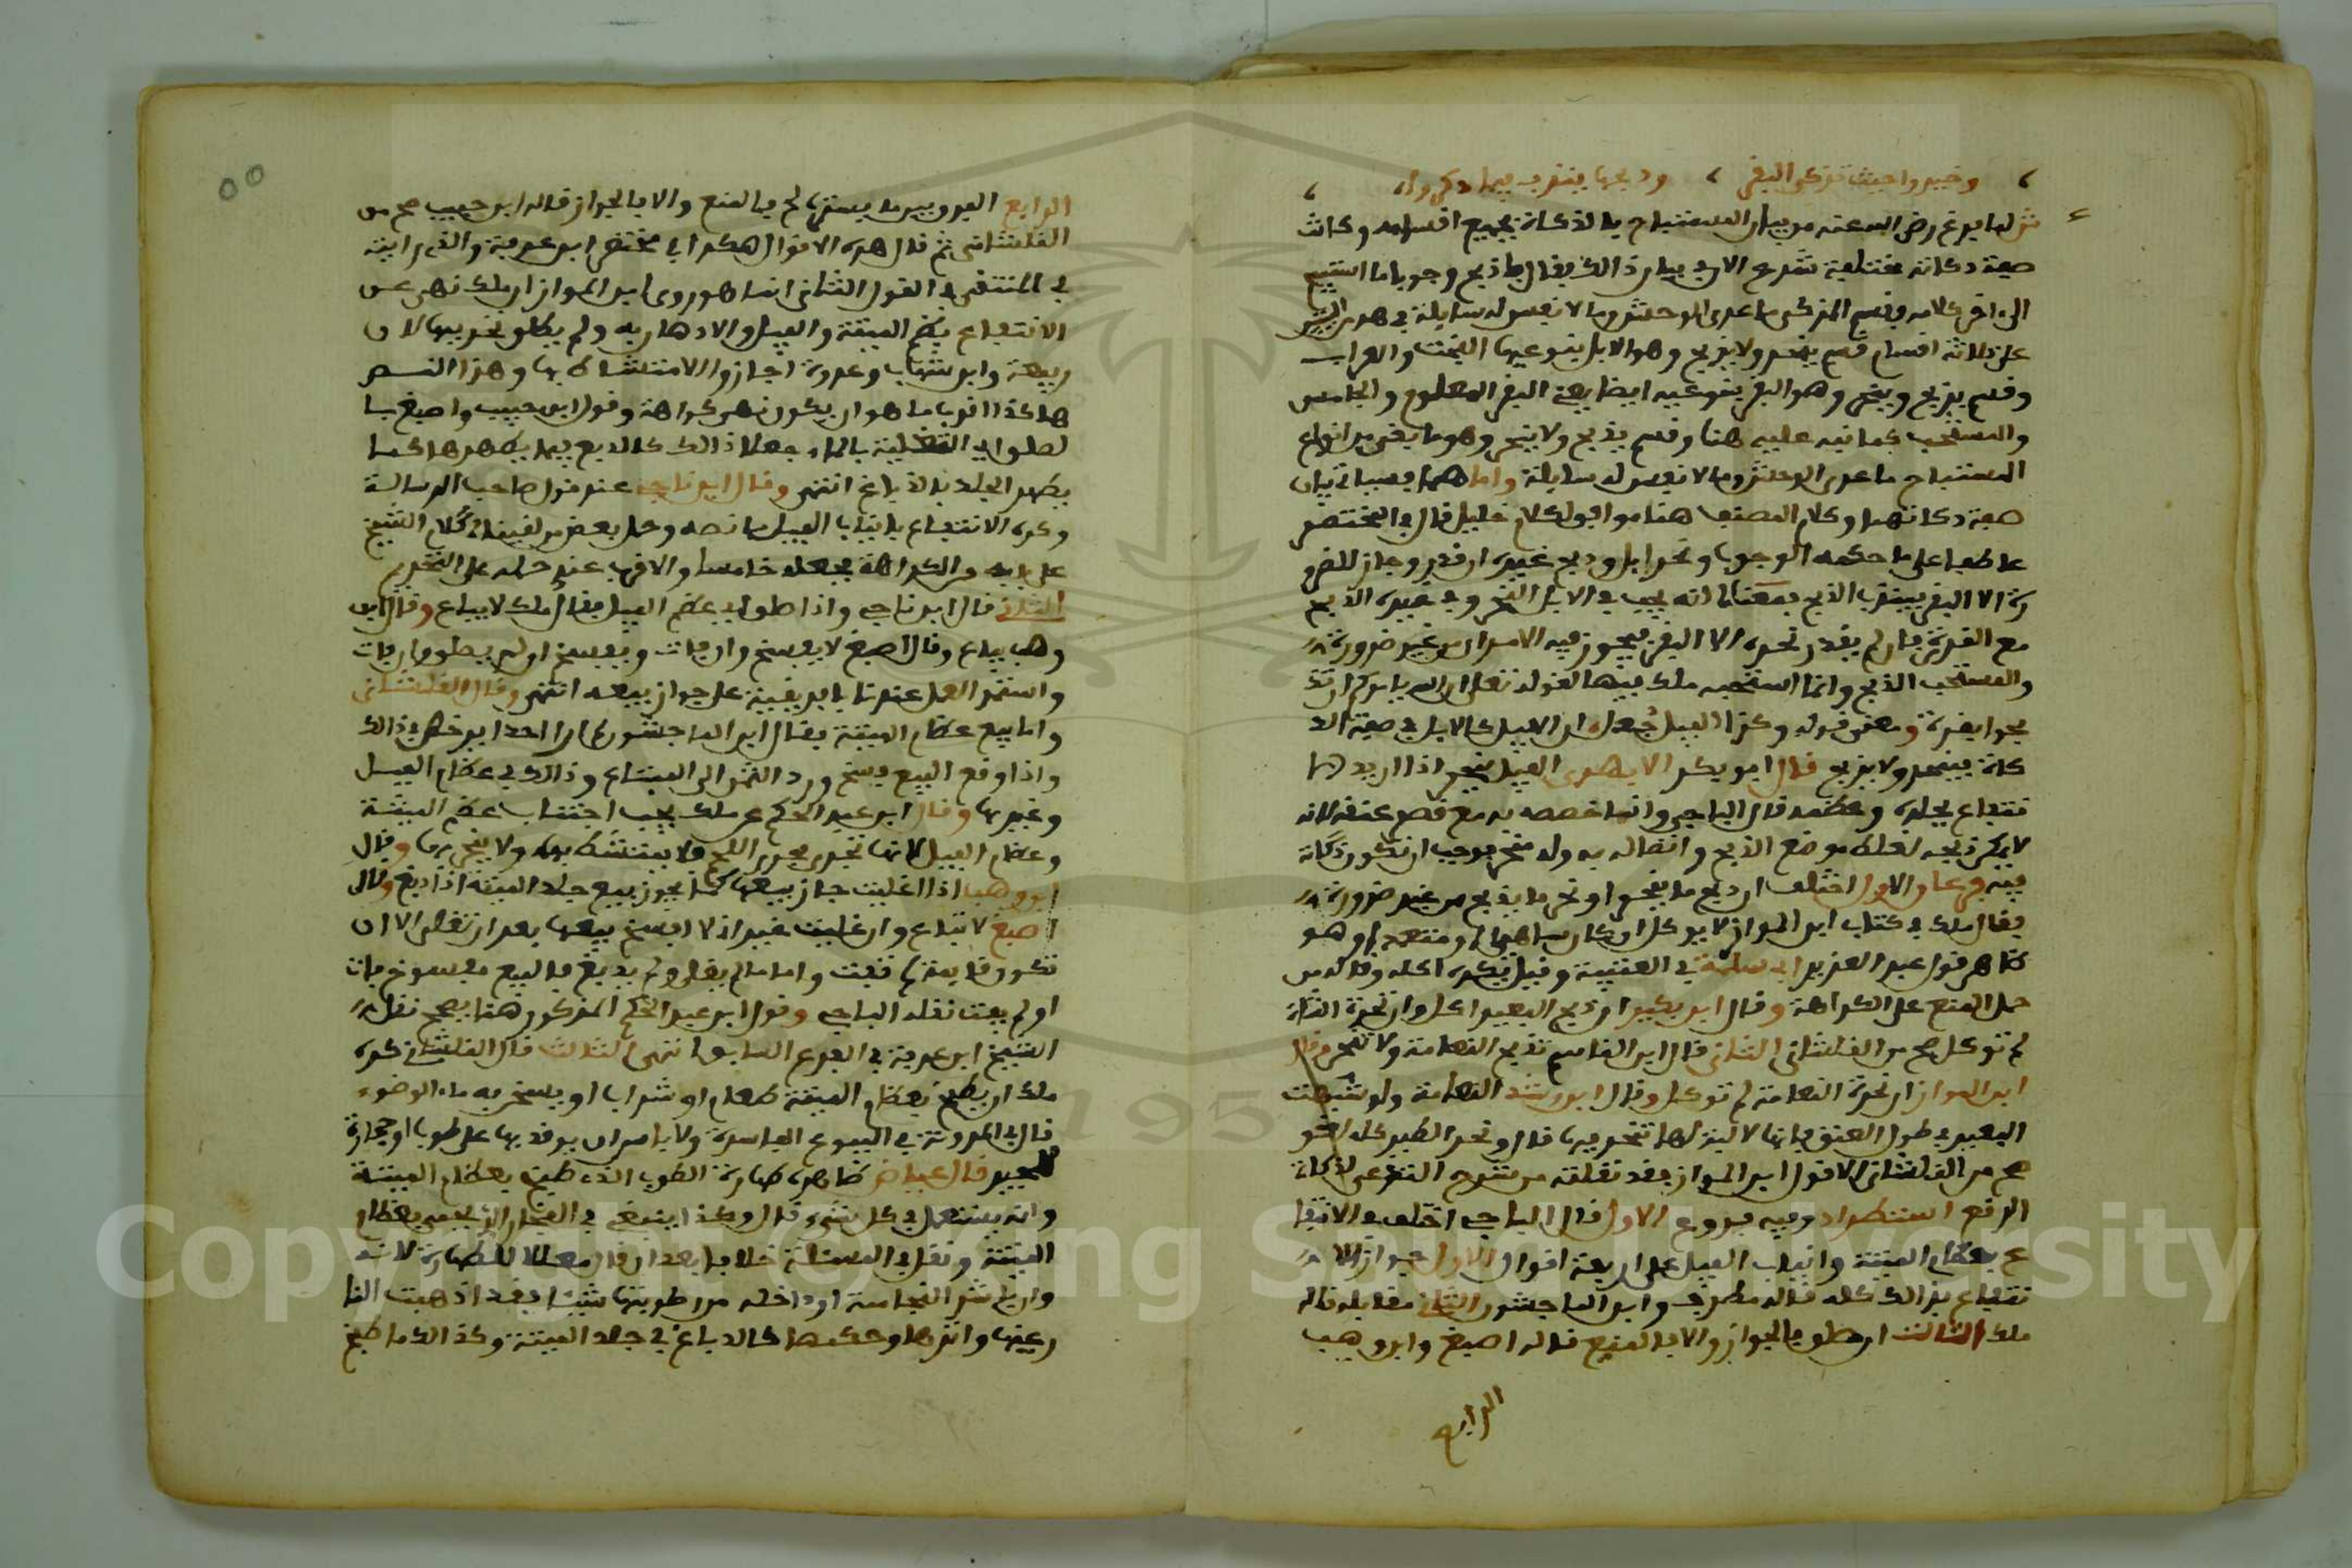 وخيروا حيث تزكى البقر ، وذبحها يندب فيما ذكروا
ش لما فرغ رضي الله عنه من بيان المستباح بالذكاة بجميع اقسامه وكانت
صفة ذكاته مختلفة شرع الان في بيان ذالك فقال ما ذبح وجوبا ما استتم
الى اخر كلامه وقسم المذكى ما عدى الوحش وما لا نفس له سايلة في هذين البيتين
على ثلاثة اقسام قسم ينحر ولا يذبح وهو الابل بنوعيها البخت والعراب
وقسم يذبح وينحر وهو البقر بنوعيه ايضا يعني البقر المعلوم والجاموس
والمستحب كما نبه عليه هنا وقسم يذبح ولا ينحر وهو ما بقي من انواع
المستباح ما عدى الوحش وما لا نفس له سايلة واما هما فسياتي بيان
صفة ذكاتهما وكلام المصنف هنا موافق لكلام خليل قال في المختصر
عاطفا على ما حكمه الوجوب ونحر ابل وذبح غيره ان قدر وجاز للضرو
رة الا البقر فيندب الذبح بمعنى انه يجب في الابل النحر وفي غيره الذبح
مع القدرة فان لم يقدر نحره الا البقر فيجوز فيه الامران من غير ضرورة
والمستحب الذبح وانما استحبه ملك فيها لقوله تعلى ان الله يامركم ان تذ
بحوا بقرة ومعنى قوله وكذا الفيل جعله ان الفيل كالابل في صفة الذ
كاة فينحر ولا يذبح قال ابو بكر الابهري الفيل ينحر اذا اريد الا
نتفاع بجلده وعظمه قال الباجي وانما خصصه به مع قصر عنقه لانه
لا يمكن ذبحه لغلظ موضع الذبح واتصاله به وله منحر فوجب ان تكون ذكاته
فيه فرعان الاول اختلف ان ذبح ما ينحر او نحر ما يذبح من غير ضرورة
فقال ملك في كتاب ابن المواز لا يوكل ان كان ساهيا او متعمدا وهو
ظاهر قول عبد العزيز ابي سلمة في العتبية وقيل يكره اكله وقاله من
حمل المنع على الكراهة وقال ابن بكير ان ذبح البعير اكل وان نحرت الشاة
لم توكل صح من القلشاني الثاني قال ابن القاسم تذبح النعامة ولا تنحر وقال
ابن المواز ان نحرت النعامة لم توكل وقال ابن رشد النعامة ولو شبهت
البعير في طول العنق فانها لا لبة لها تنحر فيها قال ونحر الطير كله لغو
صح من القلشاني الا قول ابن المواز فقد نقلته من شرح
استطراد وفيه فروع الاول قال الباجي اختلف في الانتفا
ع بعظام الميتة وانياب الفيل على اربعة اقوال الاول جواز الا
نتفاع بذالك كله قاله مطرف وابن الماجشون الثاني مقابله قاله
ملك الثالث ان طلو فالجواز والا فالمنع قاله اصبغ وابن وهب
الرابع
الرابع الفرق بين ما يشبهها لم فالمنع والا فالجواز قاله ابن حبيب صح من
القلشاني ثم قال هذه الاقوال هكذا في مختصر ابن عرفة والذي رايته
في المنتقى في القول الثاني انما هو روى ابن المواز ان ملك نهى عن
الانتفاع بعظم الميتة والفيل والادهان به ولم يطلق تحريمها لان
ربيعة وابن شهاب وعروة اجازوا الامتشاط بها وهذا النص
هاكذا اقرب ما هو ان يكون نهي كراهة وقول ابن حبيب واصبغ بنا
لصلوا في التغلية بالماء جعلا ذالك كالدبغ فيما يطهرها كما
يطهر الجلد بالدباغ انتهى وقال ابن ناجي عند قول صاحب الرسالة
وكره الانتفاع بانياب الفيل ما نصه وحمل بعض من لقيناه كلام الشيخ
على بابه من الكراهة فجعله خامسا والاقرب عندي حمله على التحريم
الثاني قال ابن ناجي واذا طولب عظم الفيل فقال ملك لا يباع وقال ابن
وهب يباع وقال اصبغ لا يفسخ وان فات ويفسخ ان لم يطلو ما لم يفت
واستمر العمل عندنا بافريقية على جواز بيعه انتهى وقال القلشاني
واما بيع عظام الميتة فقال ابن الماجشون ما ارا احدا يرخص في ذالك
واذا وقع البيع فسخ ورد الثمن الى المبتاع وذالك في عظام الفيل
وغيرها وقال ابن عبد الحكم عن ملك يجب اجتناب عظم الميتة
وعظام الفيل لانها تجري مجرى اللحم فلا يمتشط بها ولا يتجر بها وقال
ابن وهب اذا اغليت جاز بيعها كما يجوز بيع جلد الميتة اذا دبغ وقال
اصبغ لا تباع وان غليت غير اني لا افسخ بيعها بعد ان تغلى الا ان
تكون قايمة لم تفت واما ما لم يغل ولم يدبغ فالبيع مفسوخ فات
او لم يفت نقله الباجي وقول ابن عبد الحكم المذكور هنا يصحح نقل
الشيخ ابن عرفة في الفرع السابق انتهى الثالث قال القلشاني كره
ملك ان يطبخ بعظام الميتة طعام او شراب او يسخن به ماء الوضوء
قال في المدونة في البيوع الفاسدة ولا باس ان يوقد بها على طوب او حجارة
للجير قال عياض ظاهره طهارة الطوب الذي طبخ بعظام الميتة
وانه يستعمل في كل شيء قال وكذا ينبغي في الفخار الذي بعظام
الميتة ونقل في المسئلة خلافا بعد ان قال معللا للطهارة لانه
وان باشر النجاسة او داخله من رطوبتها شيئا فقد اذهبت النا
ر عينها واثرها وحكمها كالدباغ في جلد الميتة وكذالك ما طبخ
Copyright © King Saud University
195